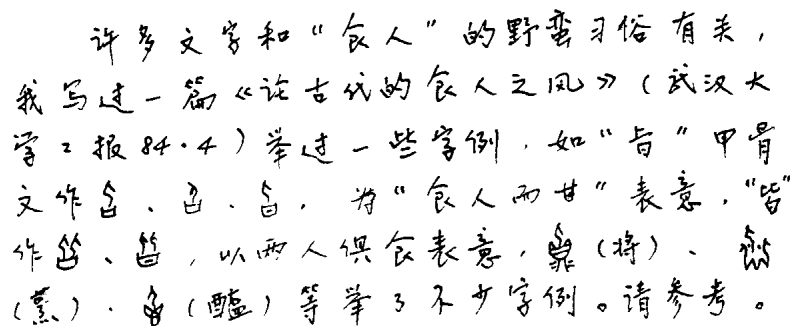 许多文字和“食人”的野蛮习俗有关，
我写过一篇《论古代的食人之风》（武汉大
学学报84·4）举过一些字例，如“旨”甲骨
文作、、，为“食人而甘”表意，“皆”
作、，以两人俱食表意，（将）、
（羹）、（醢）等举了不少字例。请参考。